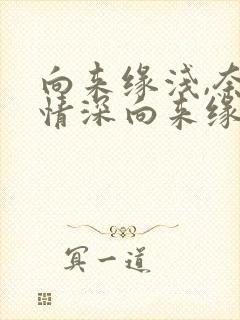 向来缘浅,奈
情深向来缘
冥一道